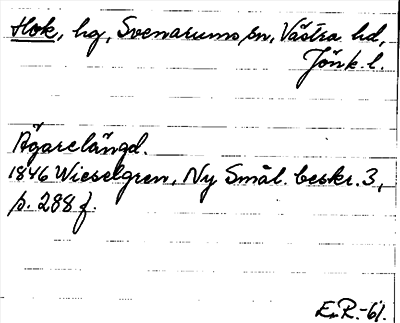 Hok, hg, Svenarums sn, Västra hd,
Jönk. l.
Ägarelängd.
1846 Wieselgren, Ny Smål. beskr. 3,
p. 288 f.
E.R.-61.